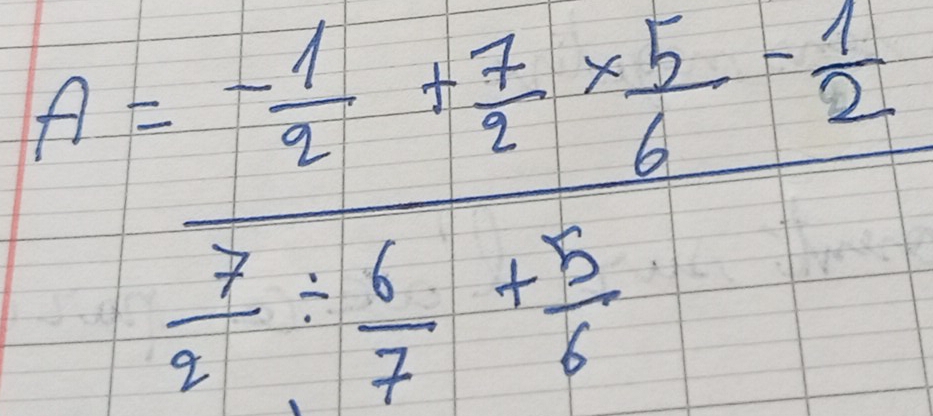 A = - 1/2 + 7/2 × 5/6 - 1/2
7/2 ÷ 6/7 + 5/6